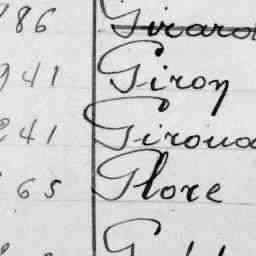 186 Girard
941 Giron
241 Giroua
65 Glore